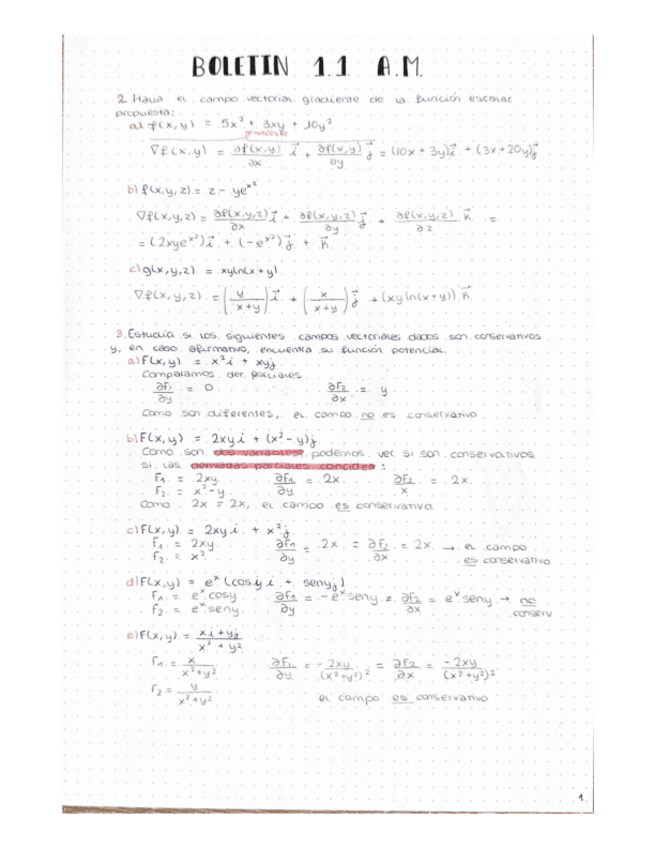 BOLETIN 1.1 A.M.
2. Halla el campo vectorial gradiente de la función escalar
propuesta:
a) f(x,y) = 5x² + 3xy + 10y²
gradiente
∇f(x,y) = ∂f(x,y)/∂x i⃗ + ∂f(x,y)/∂y j⃗ = (10x + 3y)i⃗ + (3x+20y)j⃗
b) f(x,y,z) = z - ye^x²
∇f(x,y,z) = ∂f(x,y,z)/∂x i⃗ + ∂f(x,y,z)/∂y j⃗ + ∂f(x,y,z)/∂z k⃗ =
= (2xye^x²)i⃗ + (-e^x²)j⃗ + k⃗
c) g(x,y,z) = xyln(x+y)
∇f(x,y,z) = (y/x+y) i⃗ + (x/x+y) j⃗ + (xyln(x+y)) k⃗
3. Estudia si los siguientes campos vectoriales dados son conservativos
y, en caso afirmativo, encuentra su función potencial.
a) F(x,y) = x²i + xyj
Comparamos der. parciales
∂F₁/∂y = 0 ∂F₂/∂x = y
Como son diferentes, el campo no es conservativo
b) F(x,y) = 2xyi + (x²-y)j
Como son dos variables podemos ver si son conservativos
si las derivadas parciales coinciden:
F₁ = 2xy ∂F₁/∂y = 2x ∂F₂/x = 2x
F₂ = x²-y
Como 2x = 2x, el campo es conservativo
c) F(x,y) = 2xyi + x²j
F₁ = 2xy ∂F₁/∂y = 2x = ∂F₂/∂x = 2x → el campo
F₂ = x² es conservativo
d) F(x,y) = eˣ(cosyi + senyj)
F₁ = eˣcosy ∂F₁/∂y = -eˣseny ≠ ∂F₂/∂x = eˣseny → no
F₂ = eˣseny conserv
e) F(x,y) = xi+yj/x²+y²
F₁ = x/x²+y² ∂F₁/∂y = -2xy/(x²+y²)² = ∂F₂/∂x = -2xy/(x²+y²)²
F₂ = y/x²+y² el campo es conservativo
1